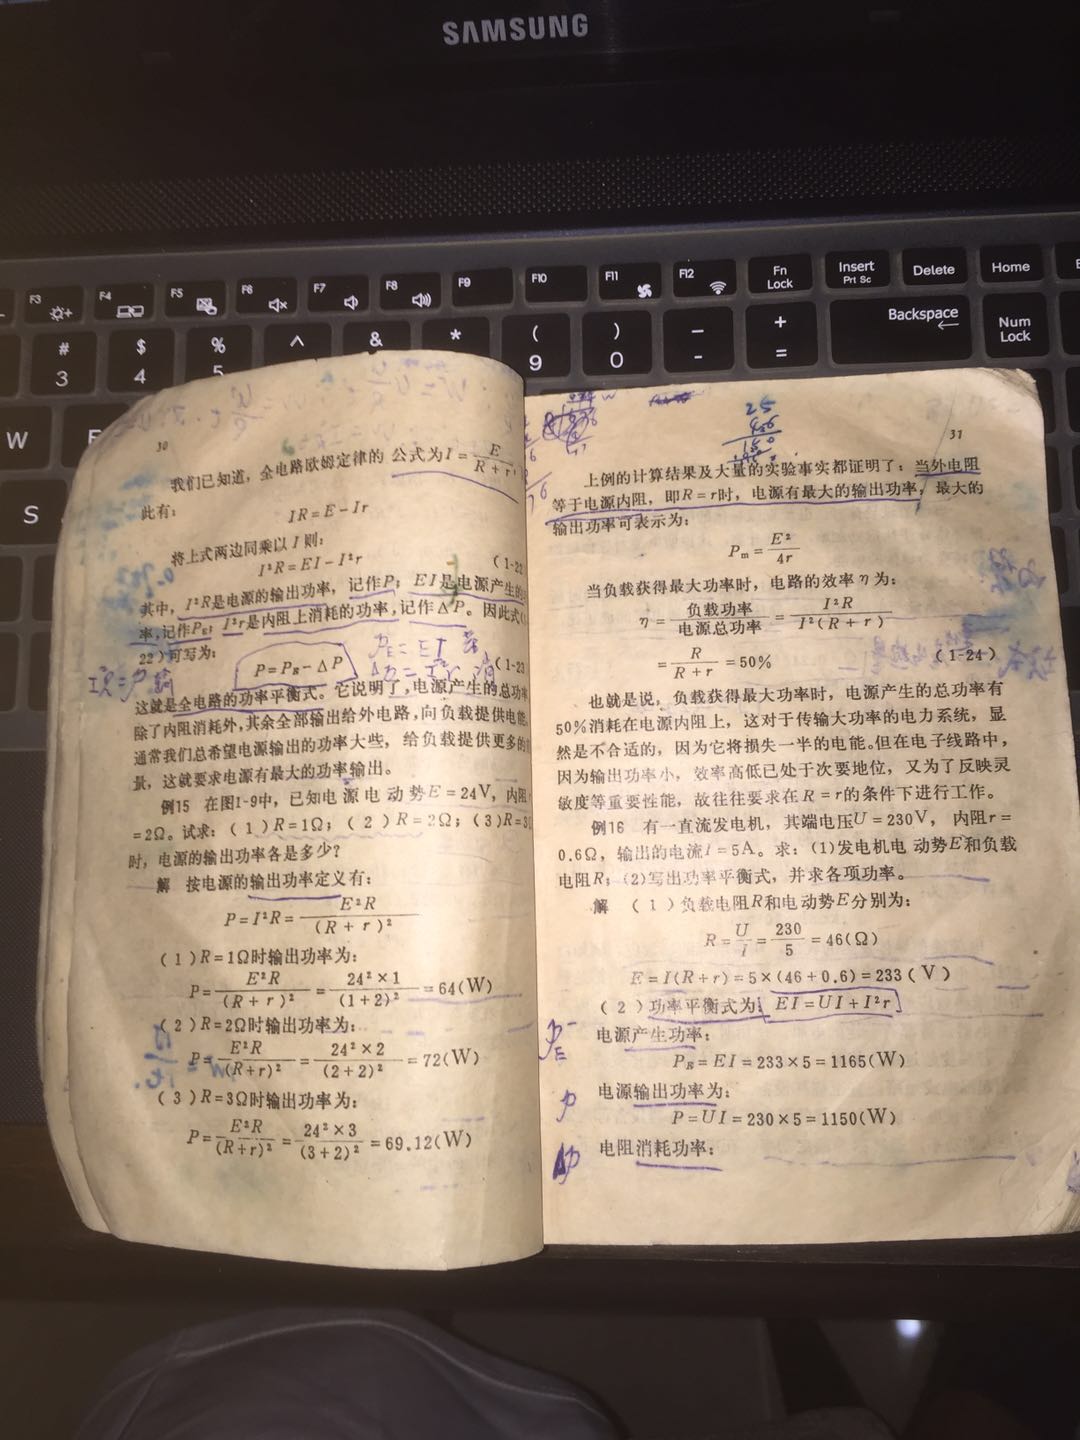 SAMSUNG
F3
F4
F5
F6
F7
F8
F9
F10
F11
F12
Fn Lock
Insert Prt Sc
Delete
Home
# 3
$ 4
% 5
^
&
*
( 9
) 0
_ -
+ =
Backspace
Num Lock
W
S
30
我们已知道，全电路欧姆定律的公式为I=E/(R+r)，
此有：
IR=E-Ir
将上式两边同乘以I则：
I²R=EI-I²r (1-22
其中，I²R是电源的输出功率，记作P；EI是电源产生的
率，记作P_E；I²r是内阻上消耗的功率，记作ΔP。因此式(
22)可写为：
P_E=EI
P=P_E-ΔP (1-23
这就是全电路的功率平衡式。它说明了，电源产生的总功率
除了内阻消耗外，其余全部输出给外电路，向负载提供电能。
通常我们总希望电源输出的功率大些，给负载提供更多的
量，这就要求电源有最大的功率输出。
例15 在图1-9中，已知电源电动势E=24V，内阻
=2Ω。试求：(1)R=1Ω；(2)R=2Ω；(3)R=3Ω
时，电源的输出功率各是多少？
解 按电源的输出功率定义有：
P=I²R=E²R/(R+r)²
(1)R=1Ω时输出功率为：
P=E²R/(R+r)²=24²×1/(1+2)²=64(W)
(2)R=2Ω时输出功率为：
P=E²R/(R+r)²=24²×2/(2+2)²=72(W)
(3)R=3Ω时输出功率为：
P=E²R/(R+r)²=24²×3/(3+2)²=69.12(W)
25
31
上例的计算结果及大量的实验事实都证明了：当外电阻
等于电源内阻，即R=r时，电源有最大的输出功率，最大的
输出功率可表示为：
P_m=E²/4r
当负载获得最大功率时，电路的效率η为：
η=负载功率/电源总功率=I²R/I²(R+r)
=R/(R+r)=50% (1-24)
也就是说，负载获得最大功率时，电源产生的总功率有
50%消耗在电源内阻上，这对于传输大功率的电力系统，显
然是不合适的，因为它将损失一半的电能。但在电子线路中，
因为输出功率小，效率高低已处于次要地位，又为了反映灵
敏度等重要性能，故往往要求在R=r的条件下进行工作。
例16 有一直流发电机，其端电压U=230V，内阻r=
0.6Ω，输出的电流I=5A。求：(1)发电机电动势E和负载
电阻R；(2)写出功率平衡式，并求各项功率。
解 (1)负载电阻R和电动势E分别为：
R=U/I=230/5=46(Ω)
E=I(R+r)=5×(46+0.6)=233(V)
(2)功率平衡式为：EI=UI+I²r
P_E
电源产生功率：
P_E=EI=233×5=1165(W)
P
电源输出功率为：
P=UI=230×5=1150(W)
ΔP
电阻消耗功率：